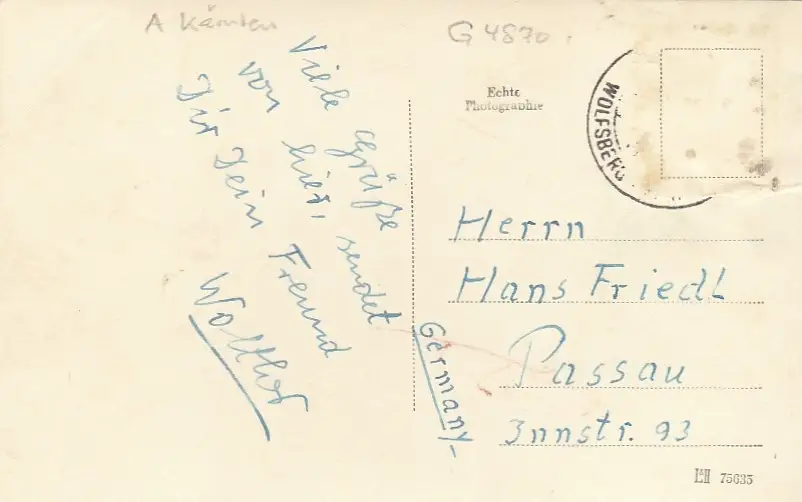 A Kärnten
G 4870.
Echte
Photographie
WOLFSBERG
Viele Grüße
von hier, sendet
Dir Dein Freund
Walther
Herrn
Hans Friedl
Passau
Innstr. 93
Germany-
75635